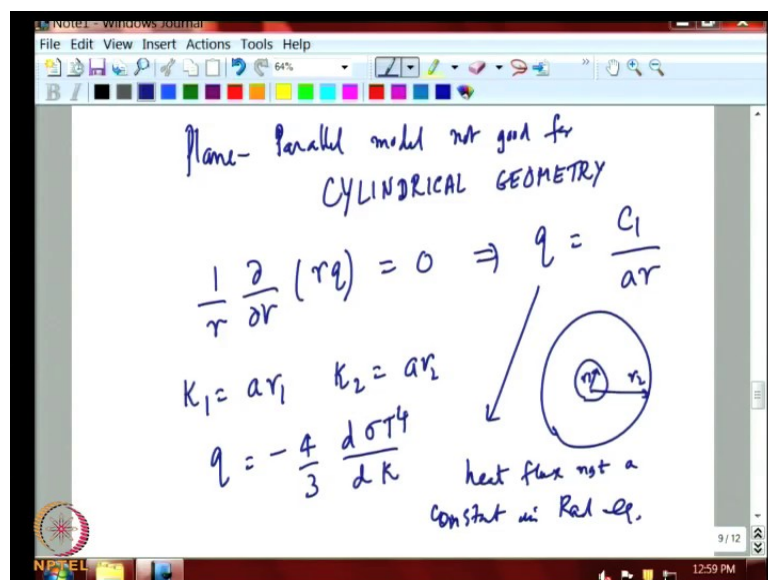 Note1 - Windows Journal
File Edit View Insert Actions Tools Help
64%
B I
Plane- Parallel model not good for
CYLINDRICAL GEOMETRY
1/r ∂/∂r (rq) = 0 ⇒ q = C1/ar
K1 = ar1 K2 = ar2
r1 r2
q = - 4/3 dσT⁴/dK
heat flux not a
constant in Rad eq.
9/12
NPTEL
12:59 PM